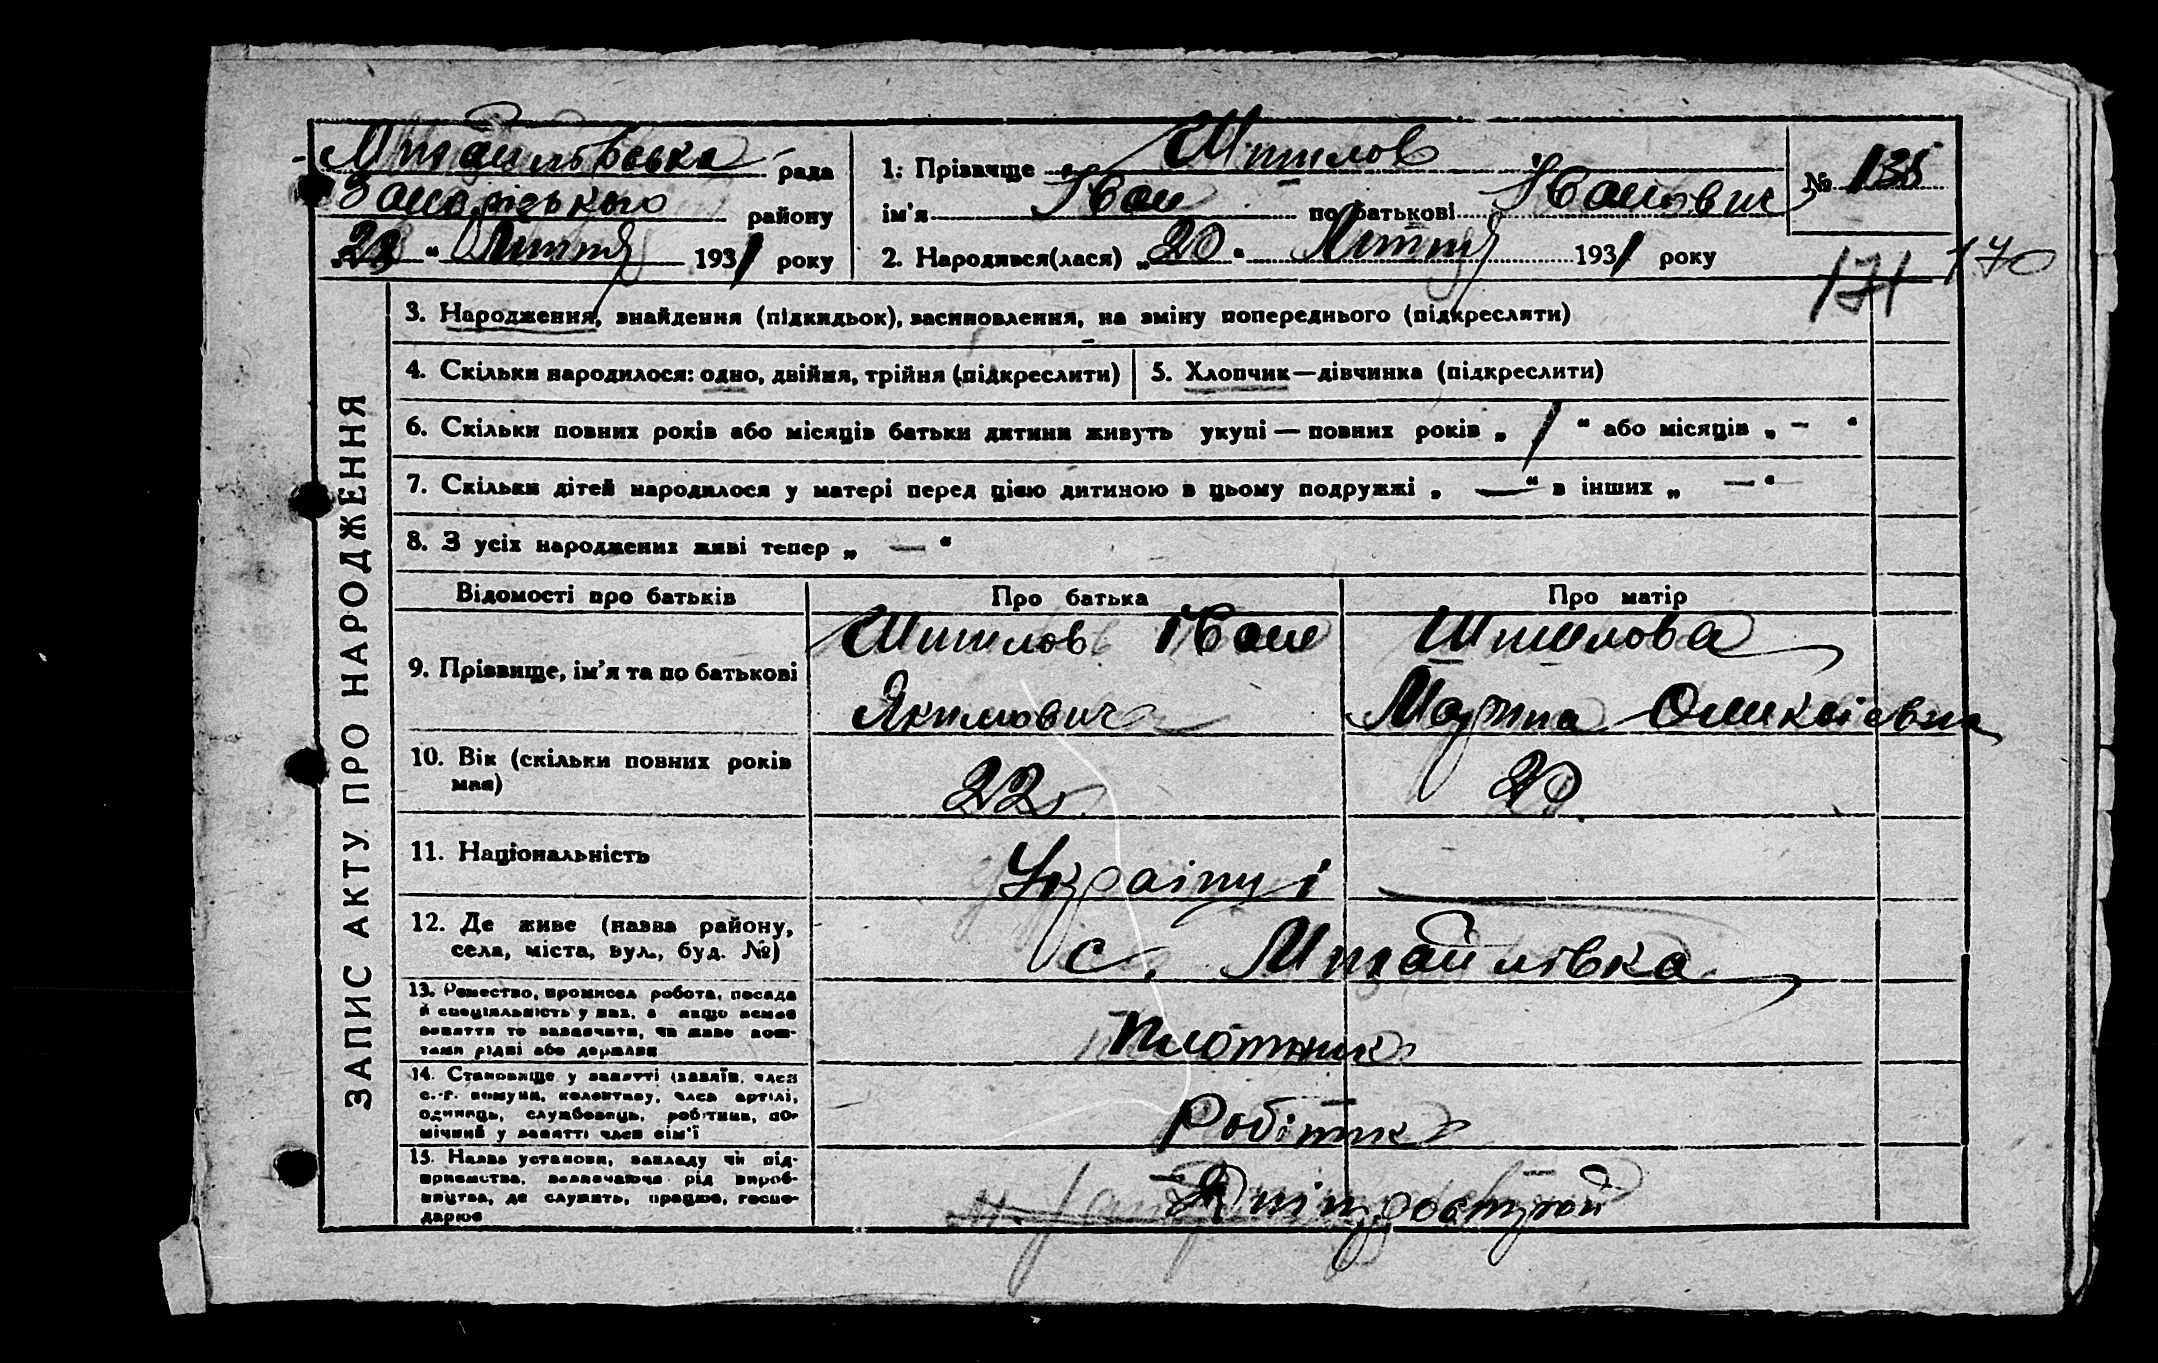 Михайлівська рада
Запорізького району
„22“ Липня 1931 року
1. Прізвище Шишлов
ім'я Іван по батькові Іванович
№ 135
2. Народився(лася) „20“ Липня 1931 року
171 170
ЗАПИС АКТУ ПРО НАРОДЖЕННЯ
3. Народження, знайдення (підкидьок), засиновлення, на зміну попереднього (підкреслити)
4. Скільки народилося: одно, двійня, трійня (підкреслити)
5. Хлопчик—дівчинка (підкреслити)
6. Скільки повних років або місяців батьки дитини живуть укупі — повних років „1“ або місяців „–“
7. Скільки дітей народилося у матері перед цією дитиною в цьому подружжі „—“ в інших „—“
8. З усіх народжених живі тепер „—“
Відомості про батьків Про батька Про матір
9. Прізвище, ім'я та по батькові
Шишлов Іван
Якимович
Шишлова
Марина Олексіівна
10. Вік (скільки повних років
має)
22 20
11. Національність
Українці
12. Де живе (назва району,
села, міста, вул., буд. №)
с. Михайлівка
13. Ремество, промисел робота, посада
й спеціяльність у них, а якщо немає
заняття то зазначити, чи живе кош-
тами рідні або держави
плотник
14. Становище у занятті (хазяїн, член
с.-г. комуни, колективу, член артілі,
одинець, службовець, робітник, по-
мічний у занятті член сім'ї
Робітник
15. Назва установи, закладу чи під-
приємства, зазначаючи рід вироб-
ництва, де служить, працює, госпо-
дарює
Дніпрострой